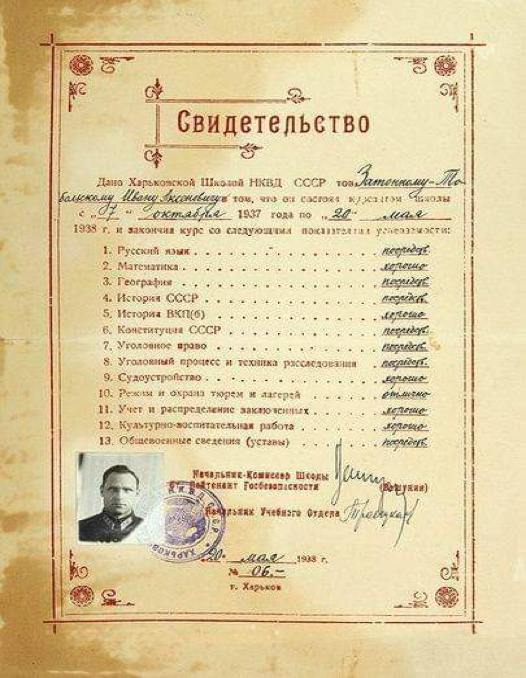 Свидетельство
Дано Харьковской Школой НКВД СССР тов. Затонному-То-
больскому Ивану Аксеновичу в том, что он состоял курсантом школы
с „7“ октября 1937 года по „20“ мая
1938 г. и закончил курс со следующими показателями успеваемости:
1. Русский язык посредств.
2. Математика хорошо
3. География посредств.
4. История СССР посредств.
5. История ВКП(б) хорошо
6. Конституция СССР посредств.
7. Уголовное право посредств.
8. Уголовный процесс и техника расследования посредств.
9. Судоустройство хорошо
10. Режим и охрана тюрем и лагерей отлично
11. Учет и распределение заключенных хорошо
12. Культурно-воспитательная работа хорошо
13. Общевоенные сведения (уставы) посредств.
Начальник-Комиссар Школы
Лейтенант Госбезопасности
Начальник Учебного Отдела
НКВД ХАРЬКОВ
„20“ мая 1938 г.
№ 06.-
г. Харьков